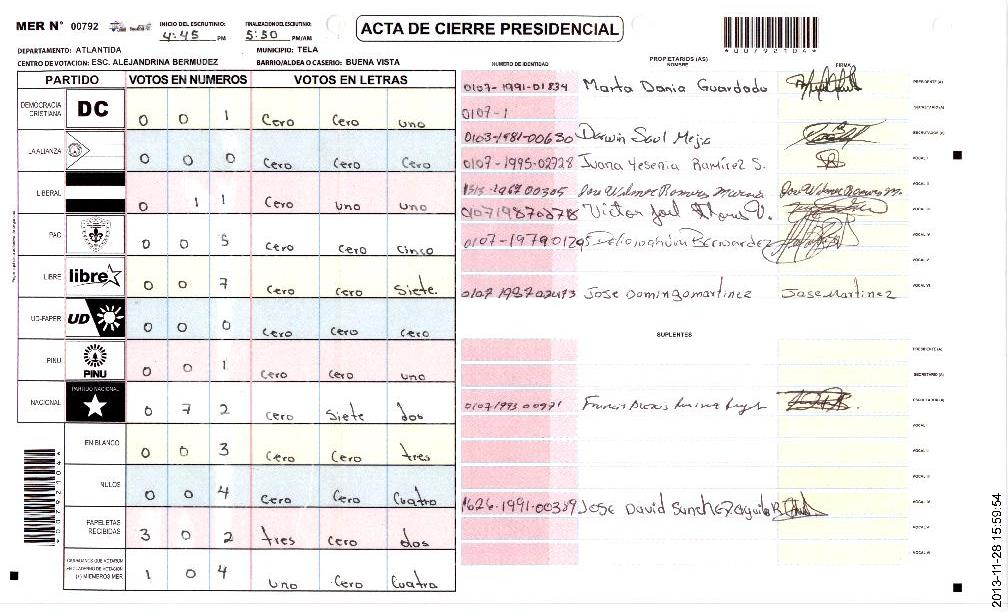 MER N° 00792
INICIO DEL ESCRUTINIO: 4:45 PM
FINALIZACION DEL ESCRUTINIO: 5:50 PM/AM
ACTA DE CIERRE PRESIDENCIAL
*00792104*
DEPARTAMENTO: ATLANTIDA
MUNICIPIO: TELA
CENTRO DE VOTACION: ESC. ALEJANDRINA BERMUDEZ
BARRIO/ALDEA O CASERIO: BUENA VISTA
PARTIDO VOTOS EN NUMEROS VOTOS EN LETRAS
DEMOCRACIA CRISTIANA DC 0 0 1 Cero Cero uno
LA ALIANZA 0 0 0 Cero Cero Cero
LIBERAL 0 1 1 Cero uno uno
PAC 0 0 5 Cero Cero Cinco
LIBRE libre 0 0 7 Cero Cero Siete.
UD-FAPER UD 0 0 0 Cero Cero Cero
PINU PINU 0 0 1 Cero Cero uno
NACIONAL PARTIDO NACIONAL 0 7 2 Cero Siete dos
EN BLANCO 0 0 3 Cero Cero tres
NULOS 0 0 4 Cero Cero Cuatro
PAPELETAS RECIBIDAS 3 0 2 tres Cero dos
CIUDADANOS QUE VOTARON EN CUADERNO DE VOTACION (+) MIEMBROS MER 1 0 4 uno Cero Cuatro
*00792104*
PROPIETARIOS (AS)
NUMERO DE IDENTIDAD NOMBRE FIRMA
0107-1991-01834 Marta Dania Guardado PRESIDENTE (A)
0107-1 SECRETARIO (A)
0103-1981-00630 Darwin Saul Mejia ESCRUTADOR (A)
0107-1995-02728 Juana Yesenia Ramírez S. VOCAL I
1967 00305 Jose Wilmer Ramires Jose Wilmer Ramires M. VOCAL II
Victor Joel V. VOCAL III
0107-1979 Bermardez VOCAL IV
VOCAL V
Jose Domingo martinez Jose Martinez VOCAL VI
SUPLENTES
PRESIDENTE (A)
SECRETARIO (A)
0107 1993 00971 ESCRUTADOR (A)
VOCAL I
VOCAL II
VOCAL III
1626-1991-00359 Jose David Sanchez VOCAL IV
VOCAL V
VOCAL VI
2013-11-28 15:59:54